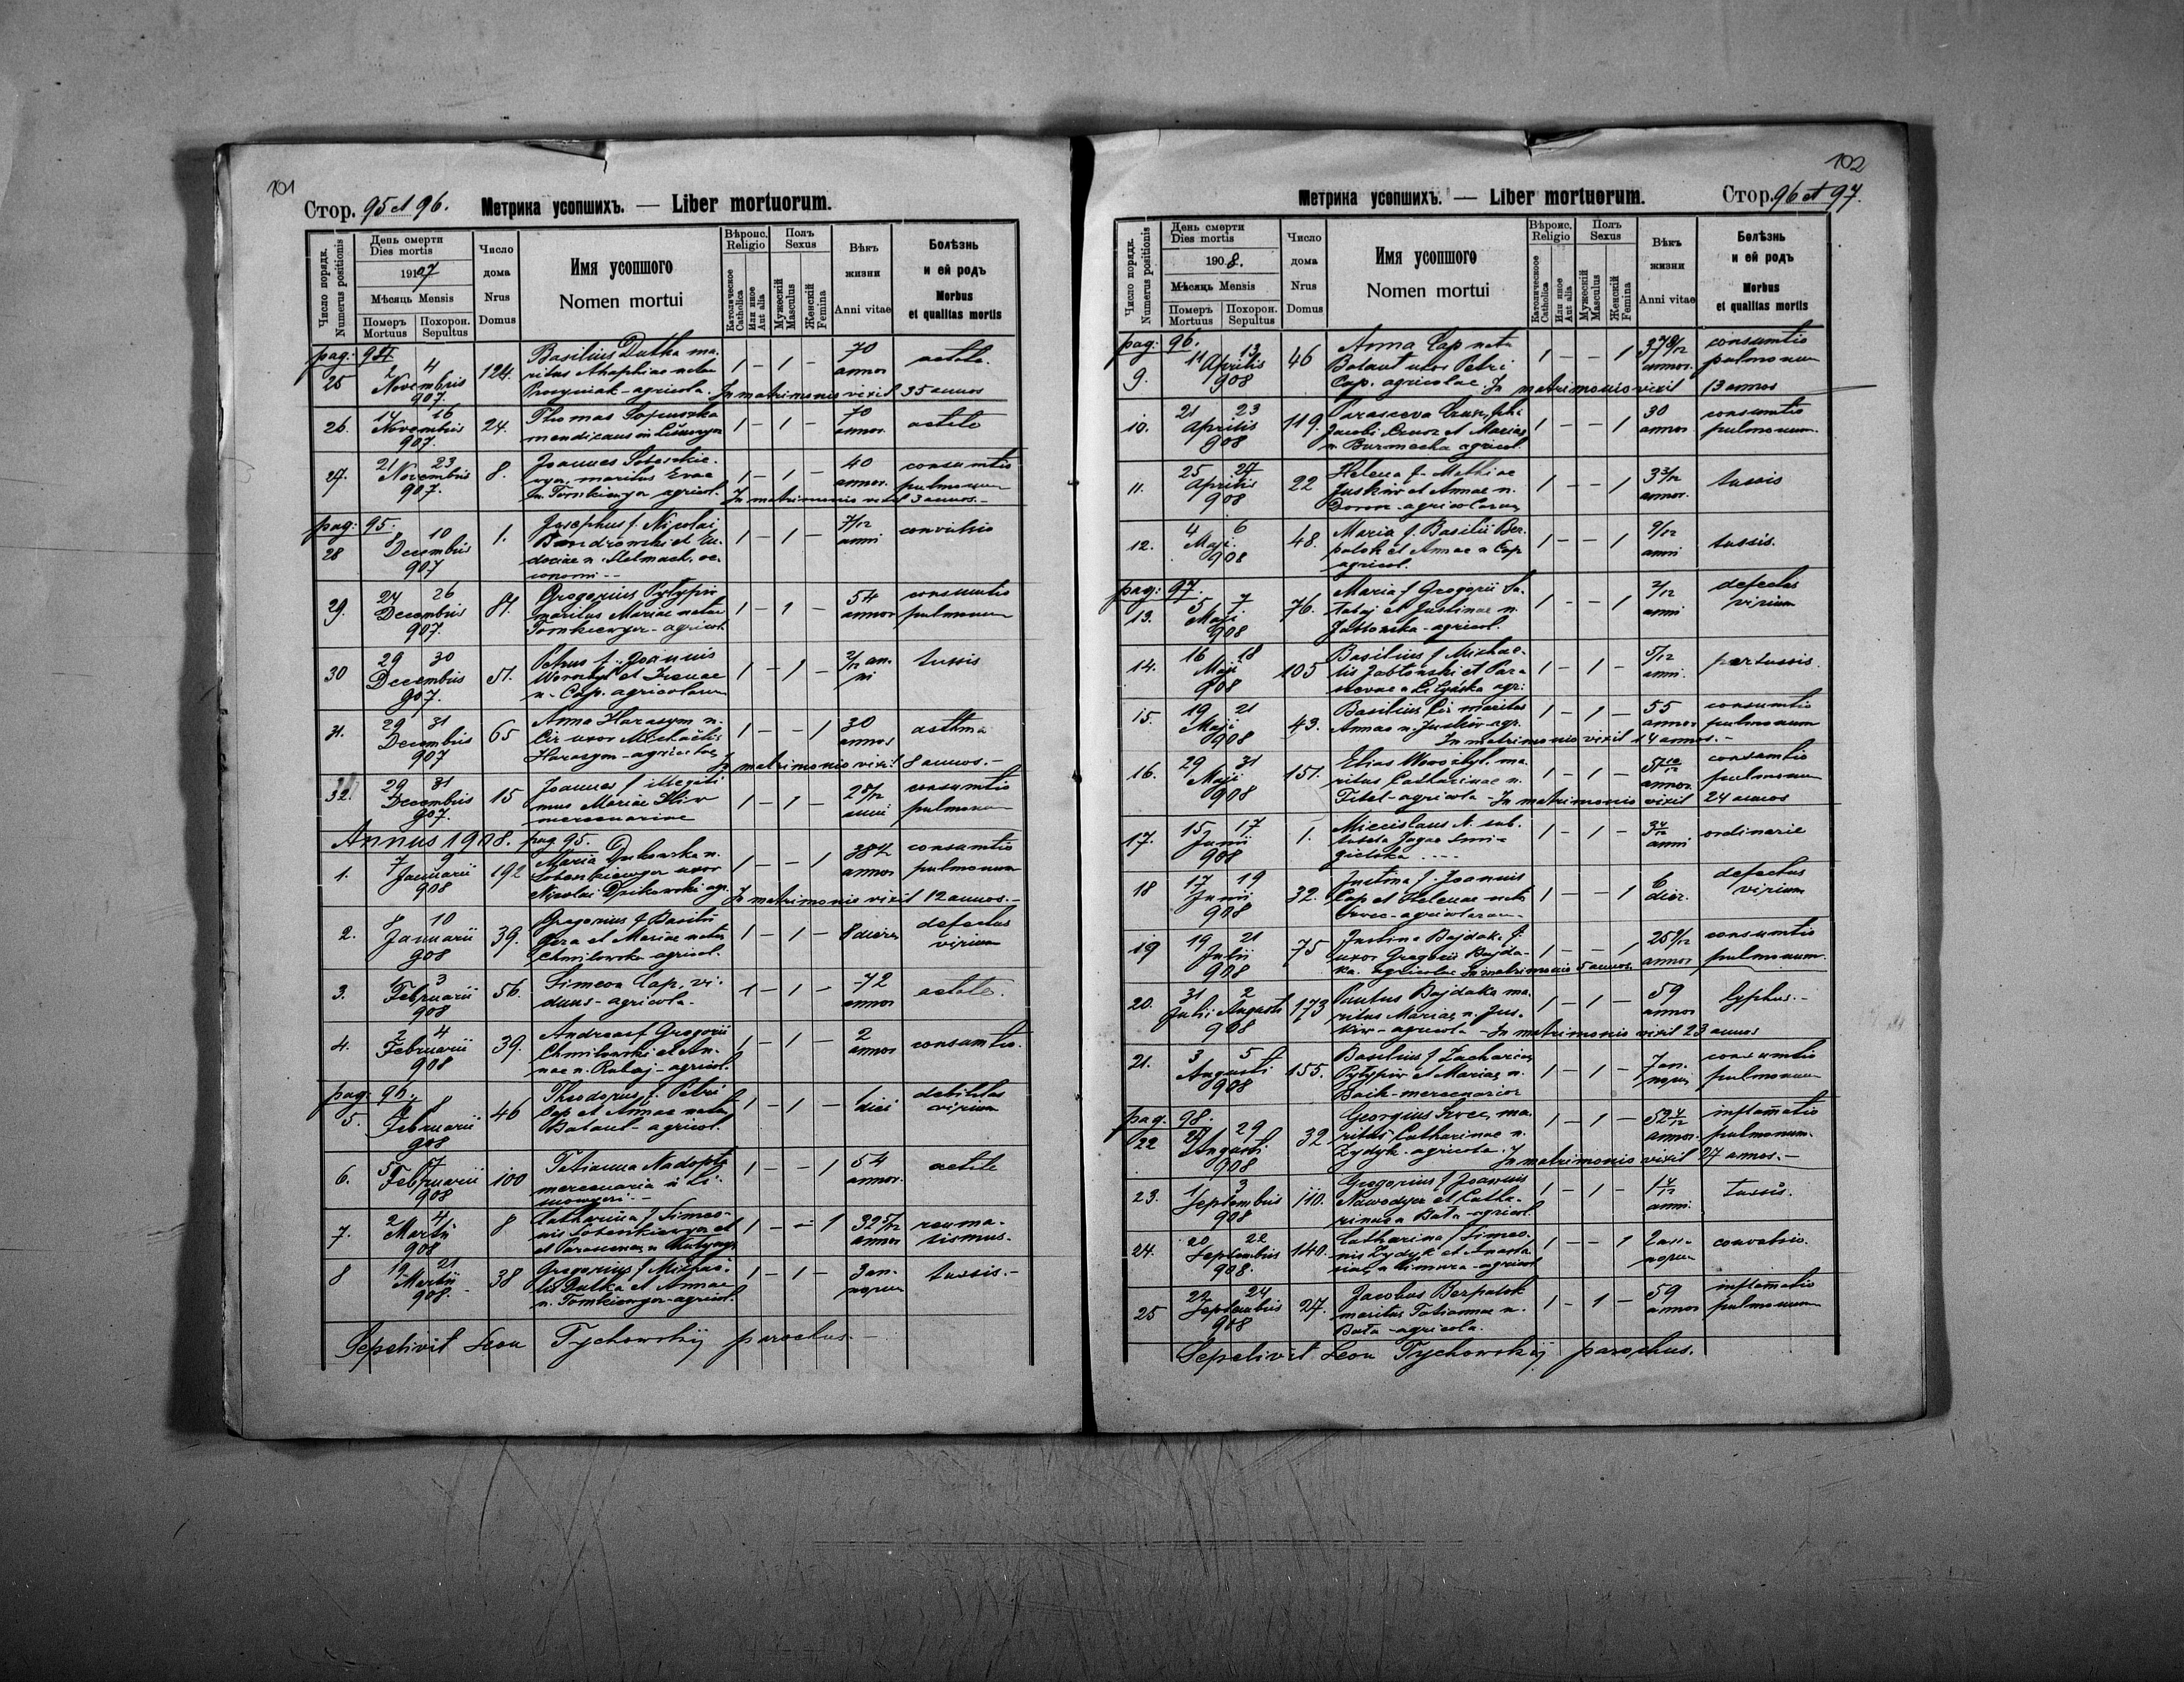 101
Стор. 95 et 96. Метрика усопшихъ. — Liber mortuorum.
Число порядк. Numerus positionis
День смерти Dies mortis
1907
Мѣсяць Mensis
Померъ Mortuus
Похорон. Sepultus
Число дома Nrus Domus
Имя усопшого
Nomen mortui
Вѣроис. Religio
Католическое Catholica
Или иное Aut alia
Полъ Sexus
Мужескій Masculus
Женскій Femina
Вѣкъ жизни Anni vitae
Болѣзнь и ей родъ
Morbus et qualitas mortis
25 2 4 Novembris 907. 124. Basilius Dutka ma- 1 – 1 – 70 annor aetate
ritus Ahaphiae natae
agricola. In matrimonio vixit 35 annos
26. 14 16 Novembris 907 24. Thomas 1 – 1 – 70 annor. aetate
mendicans in
27. 21 23 Novembris 907. 8. Joannes 1 – 1 – 40 annor. consumtio pulmonum
maritus Evae
agricol. In matrimonio vixit 3 annos.–
pag: 95.
28 8 10 Decembris 907 1. Josephus f. Nicolai 1 – 1 – 7/12 anni convulsio
n. Stelmach, oe-
conomi --
29. 24 26 Decembris 907. 81. Gregorius Pytypiw 1 – 1 – 54 annor consumtio pulmonum
maritus Mariae natae
agricol
30 29 30 Decembris 907. 51. Petrus f. Joannis 1 – 1 – 2/12 an- ni tussis
Worobyl et Irenae
n. Cap. agricolarum
31. 29 31 Decembris 907 65 Anna Harasym n. 1 – – 1 30 annor asthma
Cir uxor Michaelis
Harasym – agricolae In matrimonio vixit 8 annos.–
32. 29 31 Decembris 907. 15 Joannes f illegiti 1 – 1 – 2 8/12 anni consumtio pulmonum
mus Mariae
mercenariae
Annus 1908. pag 95.
1. 7 9 Januarii 908 192 Maria n. 1 – – 1 annor consumtio pulmonum
uxor
Nicolai agr. In matrimonio vixit 12 annos.–
2. 8 10 Januarii 908 39. Gregorius f Basilii 1 – 1 – 8 dier defectus virium
et Mariae natae
agricol.
3. 1 3 Februarii 908 56. Simeon Cap, vi- 1 – 1 – 72 annor aetate.
duus – agricola –
4. 2 4 Februarii 908 39. Andreas f Gregorii 1 – 1 – 2 annor consumtio.
Chmilowski et An-
nae n. – agricol.
pag. 96.
5. 8 Februarii 908 46 Theodorus f. Petri 1 – 1 – 1 diei debilitas virium
Cap et Annae natae
Bataut – agricol.
6. 5 7 Februarii 908 100 Tatianna Nadopta 1 – – 1 54 annor. aetate
mercenaria
7. 2 4 Martii 908 8 Catharina f Simeo- 1 – – 1 32 5/12 annor reuma- tismus.
nis et
et Parascevae n
8 19 21 Martii 908. 38 Gregorius f Michae- 1 – 1 – 3 an- norum tussis.–
lis Dutka et Annae
n. agricol.
Sepelivit Leon Tychowskij parochus.–
102
Метрика усопшихъ. — Liber mortuorum. Стор. 96 et 97.
Число порядк. Numerus positionis
День смерти Dies mortis
1908.
Мѣсяць Mensis
Померъ Mortuus
Похорон. Sepultus
Число дома Nrus Domus
Имя усопшого
Nomen mortui
Вѣроис. Religio
Католическоое Catholica
Или иное Aut alia
Полъ Sexus
Мужескій Masculus
Женскій Femina
Вѣкъ жизни Anni vitae
Болѣзнь и ей родъ
Morbus et qualitas mortis
pag: 96.
9. 11 13 Aprilis 908 46 Anna Cap nata 1 – – 1 37 8/12 annor. consumtio pulmonum
Bataut uxor Petri
Cap. agricolae. In matrimonio vixit 13 annos
10. 21 23 Aprilis 908 119. Parasceva 1 – – 1 30 annor consumtio pulmonum.
Jacobi et Mariae
n. Burmecha agricol
11. 25 27 Aprilis 908 22 Helena f. Mathiae 1 – – 1 3 3/12 annor. tussis
Juskiw et Annae n.
agricolarum
12. 4 6 Maji 908 48. Maria f. Basilii Ber- 1 – – 1 9/12 anni tussis.
patok et Annae n Cap
agricol.
pag: 97.
13. 5 7 Maji 908 76. Maria f Gregorii 1 – – 1 2/12 anni defectus virium
et Justinae n.
Jabłońska – agricol.
14. 16 18 Maji 908 105 Basilius f Michae- 1 – 1 – 5/12 anni. pertussis.
lis Jabłonski et Para
scevae n agr:
15. 19 21 Maji 908 43. Basilius Cir maritus 1 – 1 – 55 annor consumtio pulmonum
Annae n. Juskiw – agr.
In matrimonio vixit 14 annos.–
16. 29 31 Maji 908 151. Elias Worobyl. ma- 1 – 1 – annor. consumtio pulmonum
ritus Catharinae n.
Titel – agricola – In matrimonio vixit 24 annos
17. 15 17 Junii 908 1. Miecislaus N. sub. 1 – 1 – 3 4/12 anni ordinarie
tutela
18 17 19 Junii 908 32. Justina f. Joannis 1 – – 1 6 dier. defectus virium
Cap et Helenae nata
agricolarum –
19 19 21 Julii 908 75 Justina Bajdaka f. 1 – – 1 25 9/12 annor consumtio pulmonum.
uxor Gregorii Bajda-
ka. agricolae In matrimonio 5 annos.
20. 31 2 Julii Augusti 908 173 Bajdaka ma- 1 – 1 – 59 annor typhus.–
ritus Mariae n. Jus-
kiw – agricola – In matrimonio vixit 23 annos
21. 3 5 Augusti 908 155. Basilius f Zachariae 1 – 1 – 7 an- norum consumtio pulmonum
Pytypiw et Mariae n.
mercenarior
pag. 98
22 27 29 Augusti 908 32 Georgius ma- 1 – 1 – 52 4/12 annor. inflamatio pulmonum.
ritus Catharinae n.
Zydyk. agricola. In matrimonio vixit 27 annos.–
23. 1 3 Septembris 908 110. Gregorius f Joannis 1 – 1 – 1 4/12 anni. tussis.
et Catha-
rinae n Buta – agricol.
24. 20 22 Septembris 908. 140. Catharina f Simeo- 1 – – 1 2 an- norum convulsio.
nis Zydyk et Anasta-
siae n – agricol
25 22 24 Septembris 908 27. Jacobus Berpatok 1 – 1 – 59 annor inflamatio pulmonum
maritus Tatiannae n.
Buta – agricola.
Sepelivit Leon Tychowskij parochus.